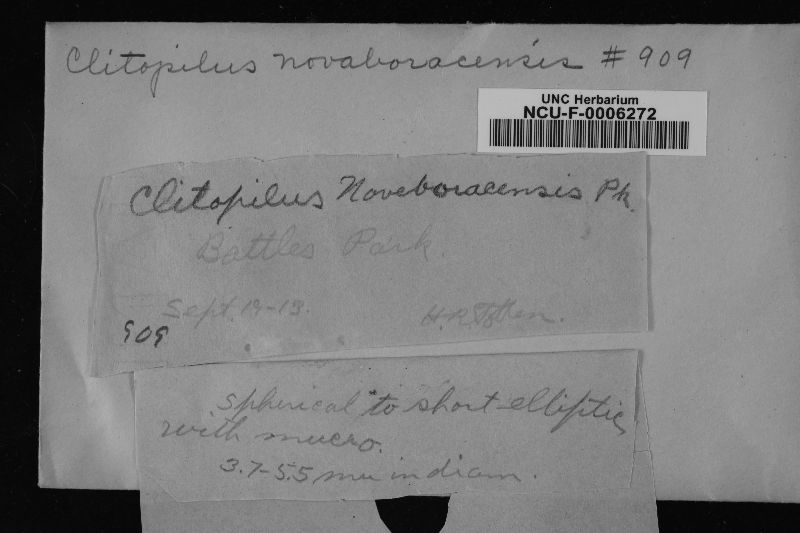 Clitopilus novaboracensis # 909
UNC Herbarium
NCU-F-0006272
Clitopilus Noveboracensis Pk.
Battles Park.
Sept. 19-13.
H.R. Totten.
909
spherical to short-elliptic,
with mucro.
3.7-5.5 mu in diam.